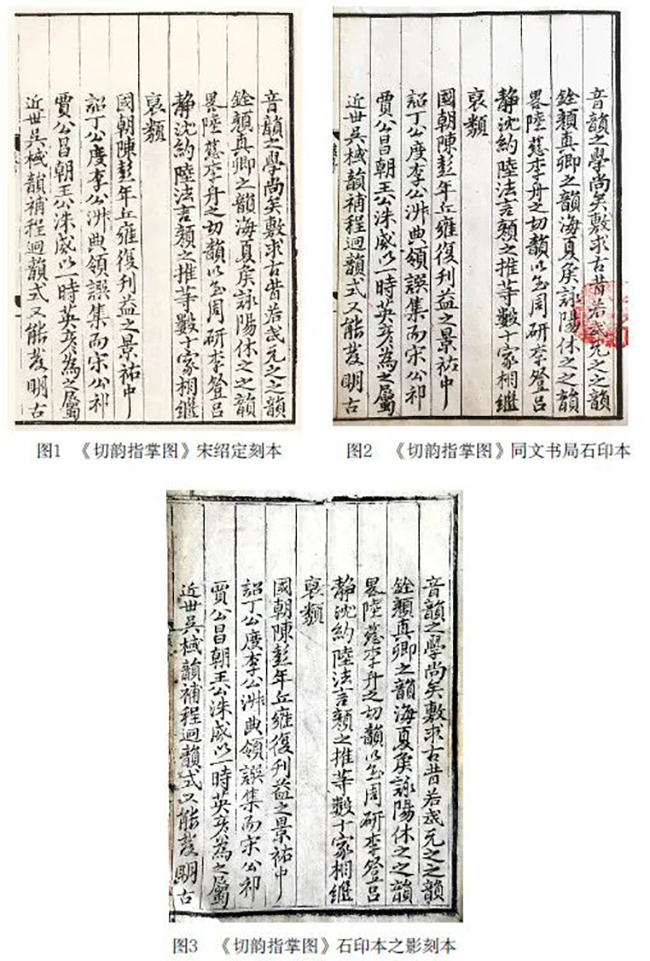 音韻之學尚矣敷求古昔若武元之之韻
銓顏真卿之韻海夏侯詠陽休之之韻
畧陸慈李舟之切韻以至周研李登呂
靜沈約陸法言顏之推等數十家相繼
裒類
國朝陳彭年丘雍復刊益之景祐中
詔丁公度李公淑典領譔集而宋公祁
賈公昌朝王公洙咸以一時英彥為之屬
近世吳棫韻補程迥韻式又能發明古
图1 《切韵指掌图》宋绍定刻本
音韻之學尚矣敷求古昔若武元之之韻
銓顏真卿之韻海夏侯詠陽休之之韻
畧陸慈李舟之切韻以至周研李登呂
靜沈約陸法言顏之推等數十家相繼
裒類
國朝陳彭年丘雍復刊益之景祐中
詔丁公度李公淑典領譔集而宋公祁
賈公昌朝王公洙咸以一時英彥為之屬
近世吳棫韻補程迥韻式又能發明古
图2 《切韵指掌图》同文书局石印本
音韻之學尚矣敷求古昔若武元之之韻
銓顏真卿之韻海夏侯詠陽休之之韻
畧陸慈李舟之切韻以至周研李登呂
靜沈約陸法言顏之推等數十家相繼
裒類
國朝陳彭年丘雍復刊益之景祐中
詔丁公度李公淑典領譔集而宋公祁
賈公昌朝王公洙咸以一時英彥為之屬
近世吳棫韻補程迥韻式又能發明古
图3 《切韵指掌图》石印本之影刻本